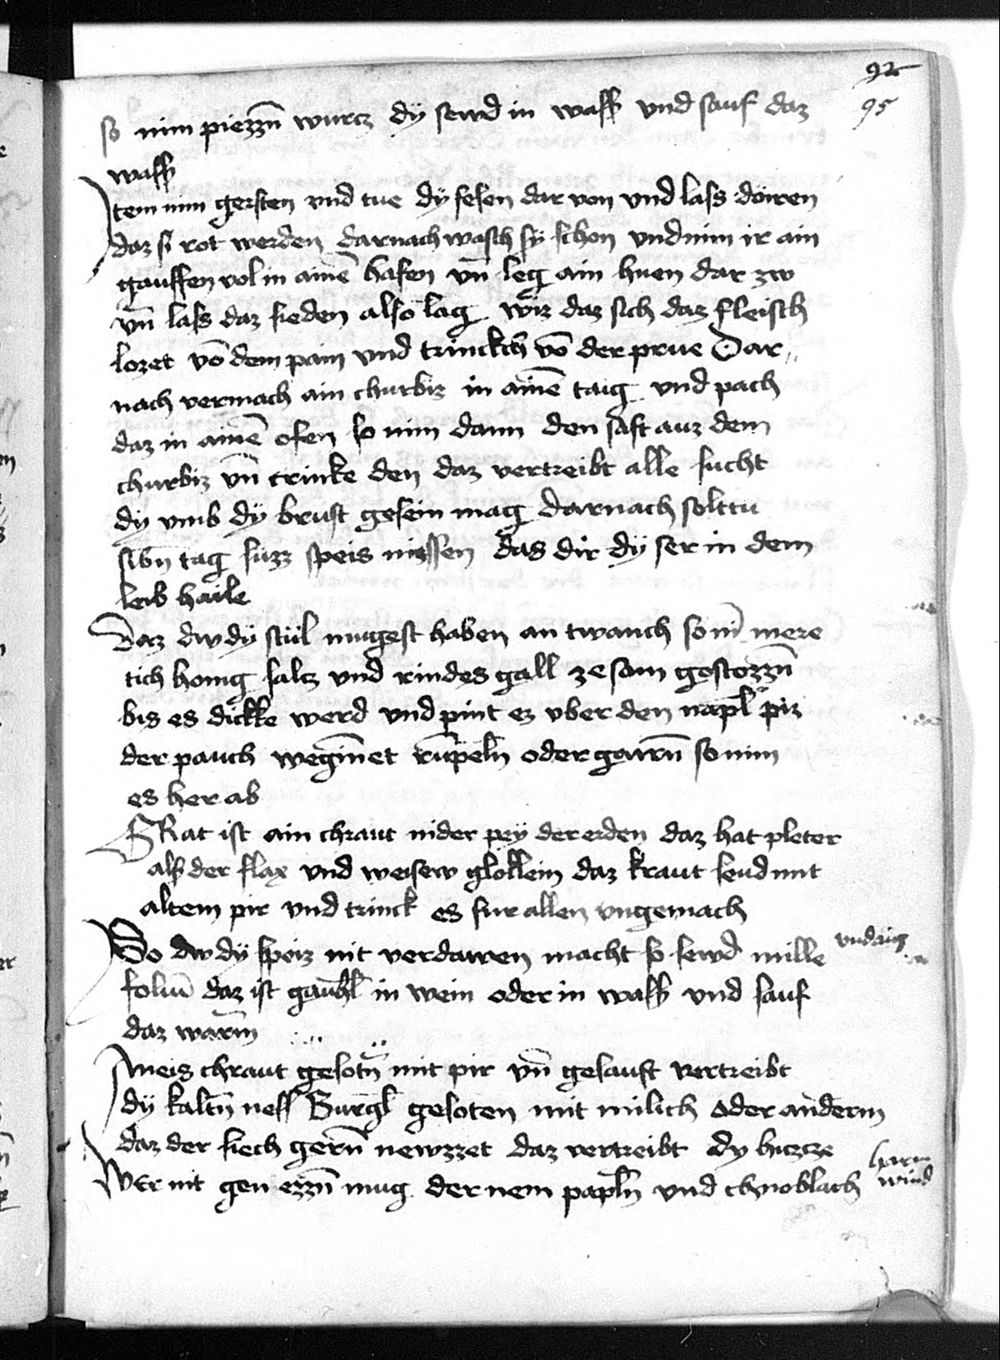 92
95
so nim piezzñ wurcz dy sewd in wass̃ vnd sauf daz
wass̃
Item nim gersten vnd tue dÿ fesen dar von vnd lass dörren
daz si rot werden darnach wasch sÿ schon vnd nim ir ain
gauffen vol in ainē hafen vñ leg ain huen dar zw
vñ lass daz sieden also lāg wiz daz sich daz fleisch
lozet vō dem pain vnd trinckch vō der prue Dar„
nach vermach ain churbiz in ainē taig vnd pach
daz in ainē ofen so nim dann den saft auz dem
churbiz vñ trinke den daz vertreibt alle sucht
dÿ vmb dÿ brust gesein mag darnach solttu
sibñ tag suzz speis niessen das dir dÿ ser in dem
leib haile
Daz dw dÿ stül mugest haben an twanch so nī mere
tich honig salcz vnd rindes gall ze sam gestozzñ
bis es dickke werd vnd pint ez vber den napl̄ piz
der pauch wegīnet rūpelñ oder garrñ so nim
es her ab
SRat ist ain chraut nider peÿ der erden daz hat pleter
als der flax vnd weisew gloklein daz kraut seud mit
altem pir vnd trinck es fur allen vngemach
So dw dÿ speiz nit verdawen macht so sewd mille
foluī daz ist in wein oder in wass̃ vnd sauf
daz warm̄
Imeis chraut gesotñ mit pir vñ gesauft vertreibt
dÿ kaltñ ness̃ Burgl̄ gesoten mit milich oder anderm
daz der siech gerñ newzzet daz vertreibt dy hiczcze
Wer nit gen ezzñ mug der nem paplñ vnd chnoblach
harm
wind